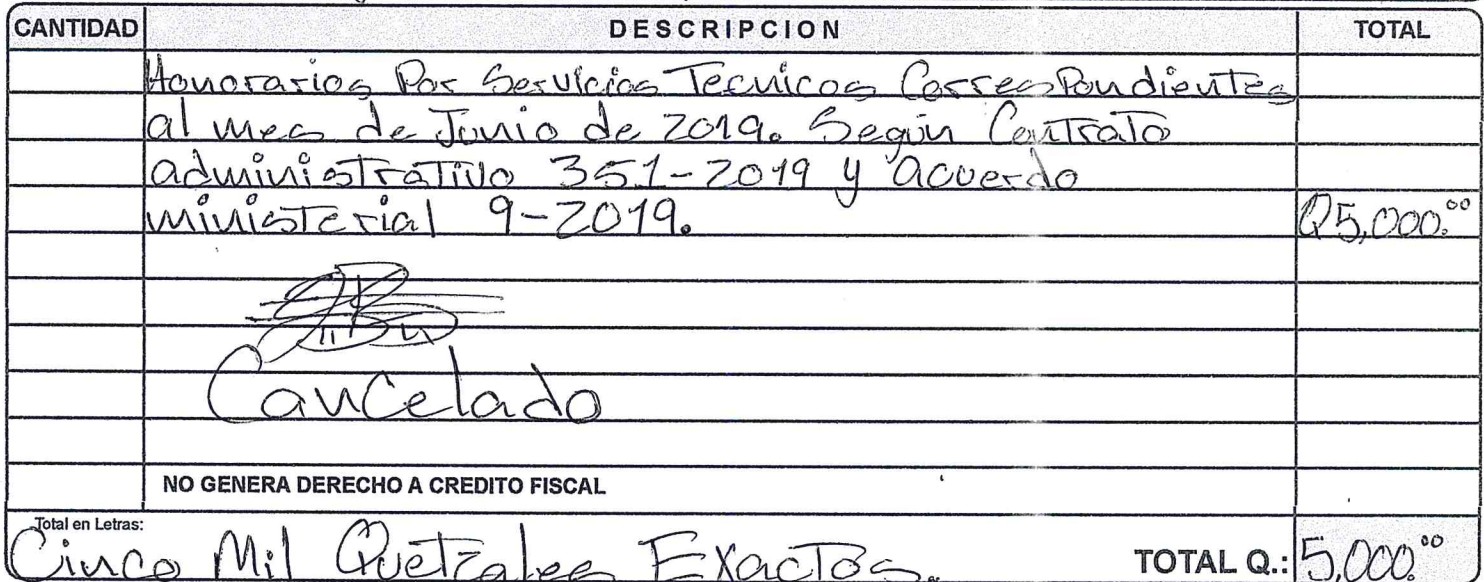 CANTIDAD DESCRIPCION TOTAL
Honorarios Por Servicios Tecnicos Correspondientes
al mes de Junio de 2019. Según Contrato
administrativo 351-2019 y acuerdo
ministerial 9-2019. Q5,000.00
Cancelado
NO GENERA DERECHO A CREDITO FISCAL
Total en Letras:
Cinco Mil Quetzales Exactos. TOTAL Q.: 5,000.00